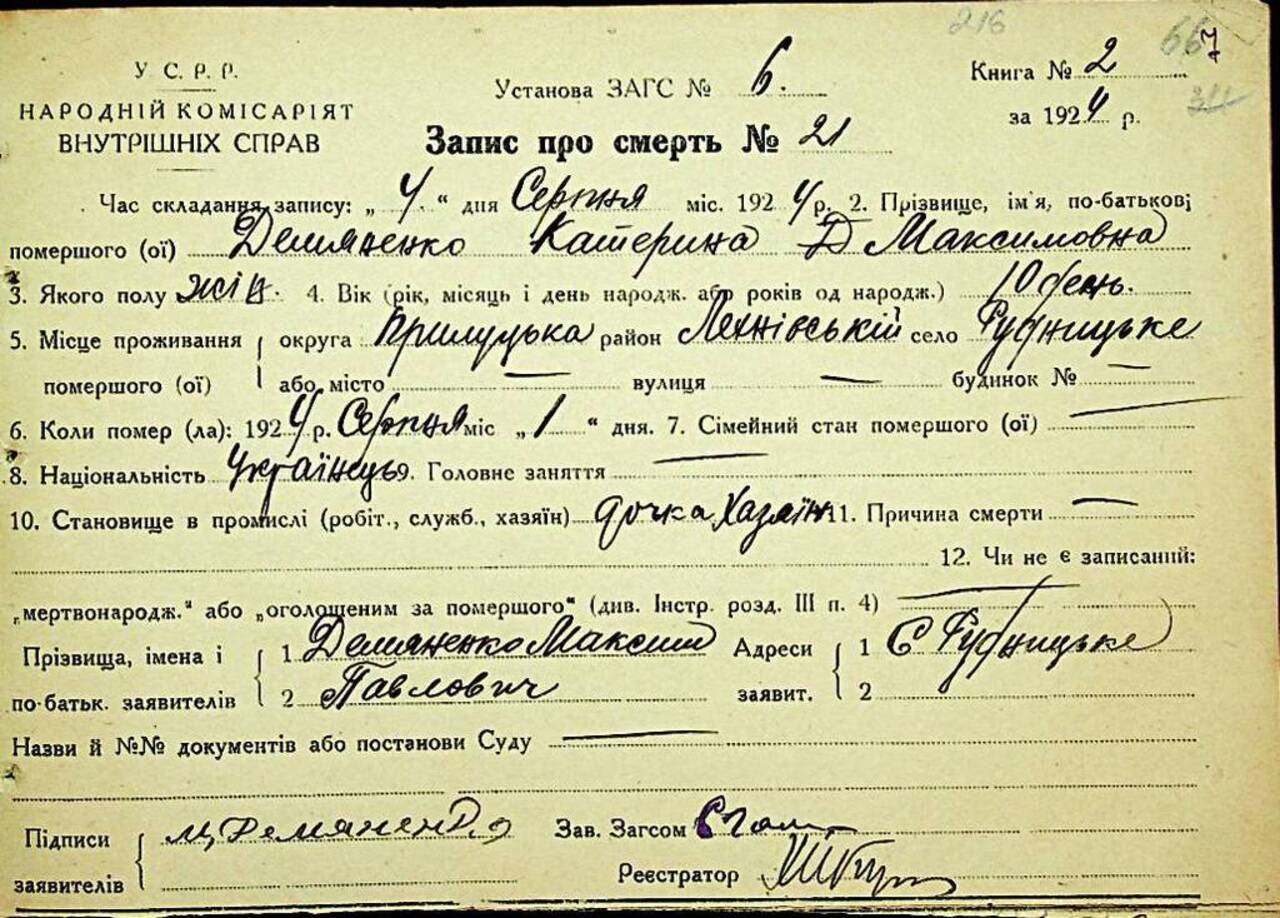 216 667
У С. Р. Р. Установа ЗАГС № 6. Книга № 2
НАРОДНІЙ КОМІСАРІЯТ за 1924 р.
ВНУТРІШНІХ СПРАВ Запис про смерть № 21
Час складання запису: „ 4. “ дня Серпня міс. 1924 р. 2. Прізвище, ім'я, по-батькові
помершого (ої) Демяненко Катерина Д Максимовна
3. Якого полу жін. 4. Вік (рік, місяць і день народж. або років од народж.) 10 день.
5. Місце проживання округа Прилуцька район Лехнівській село Рудницьке
помершого (ої) або місто — вулиця — будинок № —
6. Коли помер (ла): 1924 р. Серпня міс „ 1 “ дня. 7. Сімейний стан помершого (ої) —
8. Національність Українець 9. Головне заняття —
10. Становище в промислі (робіт., служб., хазяїн) дочка Хазяїн 11. Причина смерти —
12. Чи не є записаний:
„мертвонародж.“ або „оголошеним за помершого“ (див. Інстр. розд. III п. 4) —
Прізвища, імена і 1 Демяненко Максим Адреси 1 С Рудницьке
по-батьк. заявителів 2 Павлович заявит. 2
Назви й №№ документів або постанови Суду —
Підписи М, Демяненко Зав. Загсом
заявителів Реєстратор